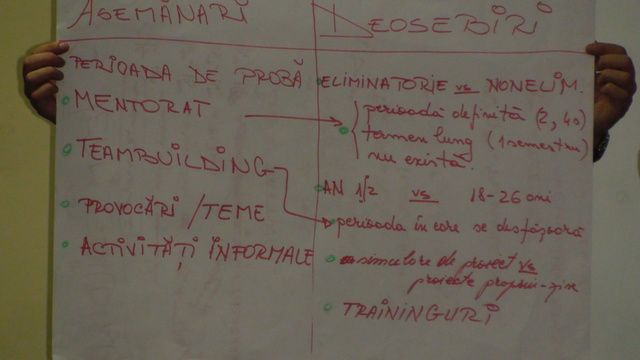 ASEMĂNARI
PERIOADA DE PROBĂ
MENTORAT
TEAMBUILDING
PROVOCĂRI / TEME
ACTIVITĂȚI INFORMALE
DEOSEBIRI
ELIMINATORIE vs NONELIM.
perioadă definită (2, 40)
termen lung (1 semestru)
nu există.
AN 1/2 vs 18-26 ani
perioada în care se desfășoară
simulare de proiect vs
proiecte propriu-zise
TRAININGURI